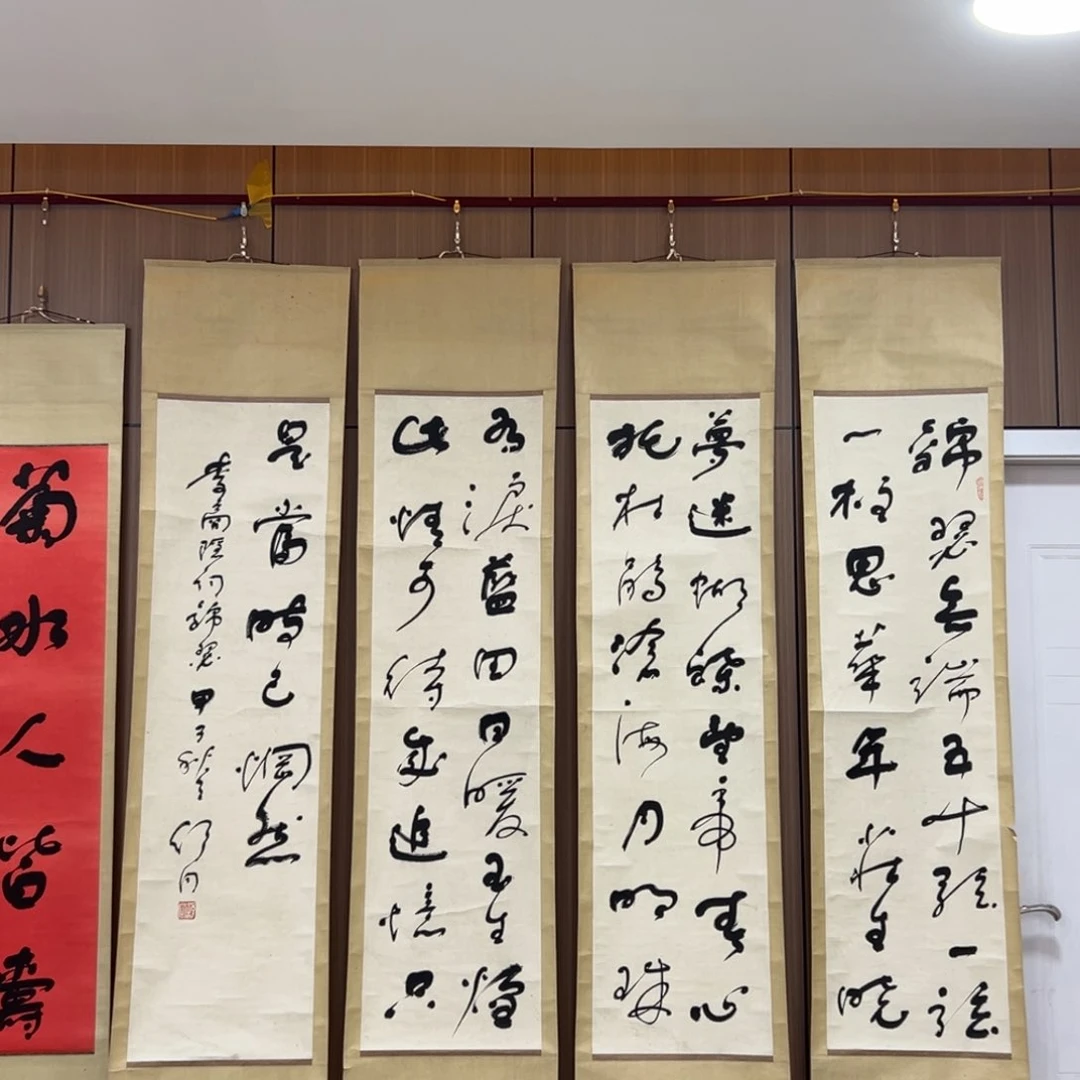 錦瑟無端五十絃一絃
一柱思華年莊生曉
夢迷蝴蝶望帝春心
托杜鵑滄海月明珠
有淚藍田日暖玉生煙
此情可待成追憶只
是當時已惘然
李商隱錦瑟甲子秋舒同
菊水人皆壽